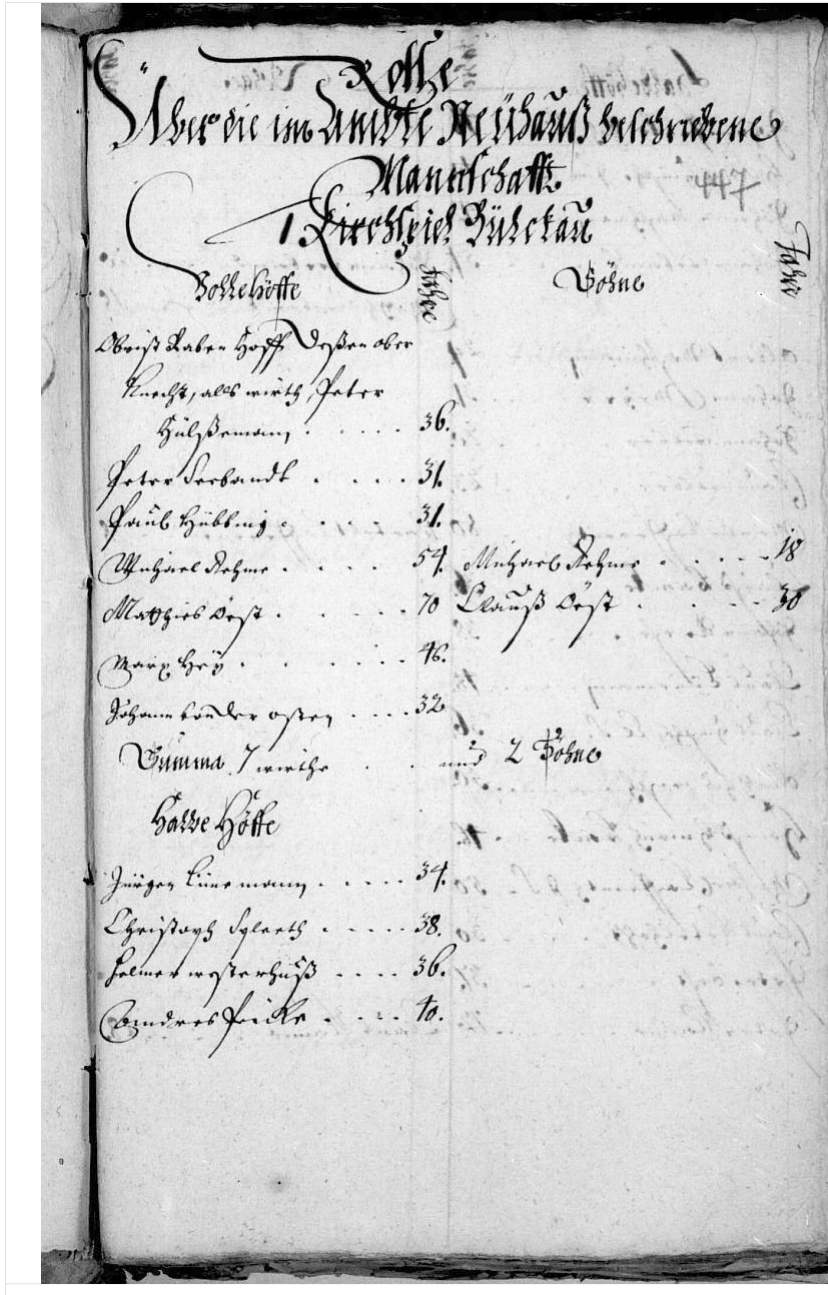 Rolle
Über die im Ambte Neühauß beschriebene
Mannschafft
1 Kirchspiel Bülckau
Volle Höffe Jahre Söhne Jahre
Obrist Raben Hoff, deßen ober
Knecht, alß wirth, Peter
Hülßemann . . . . . 36.
Peter . . . . 31.
Paul . . . 31.
Michael Rehme . . . . . 54. Michael Rehme . . . . . 18
Matthies Oest . . . . . 70 Clauß Oest . . . . . 30
Marx Hey . . . . . 46.
Johann von der osten . . . . 32
Summa 7 wirthe . . . und 2 Söhne
Halbe Höffe
Jürgen Lünemann . . . . . 34.
Christoph . . . . . 38.
Helmer westerhuß . . . . 36.
Andres . . . . 40.